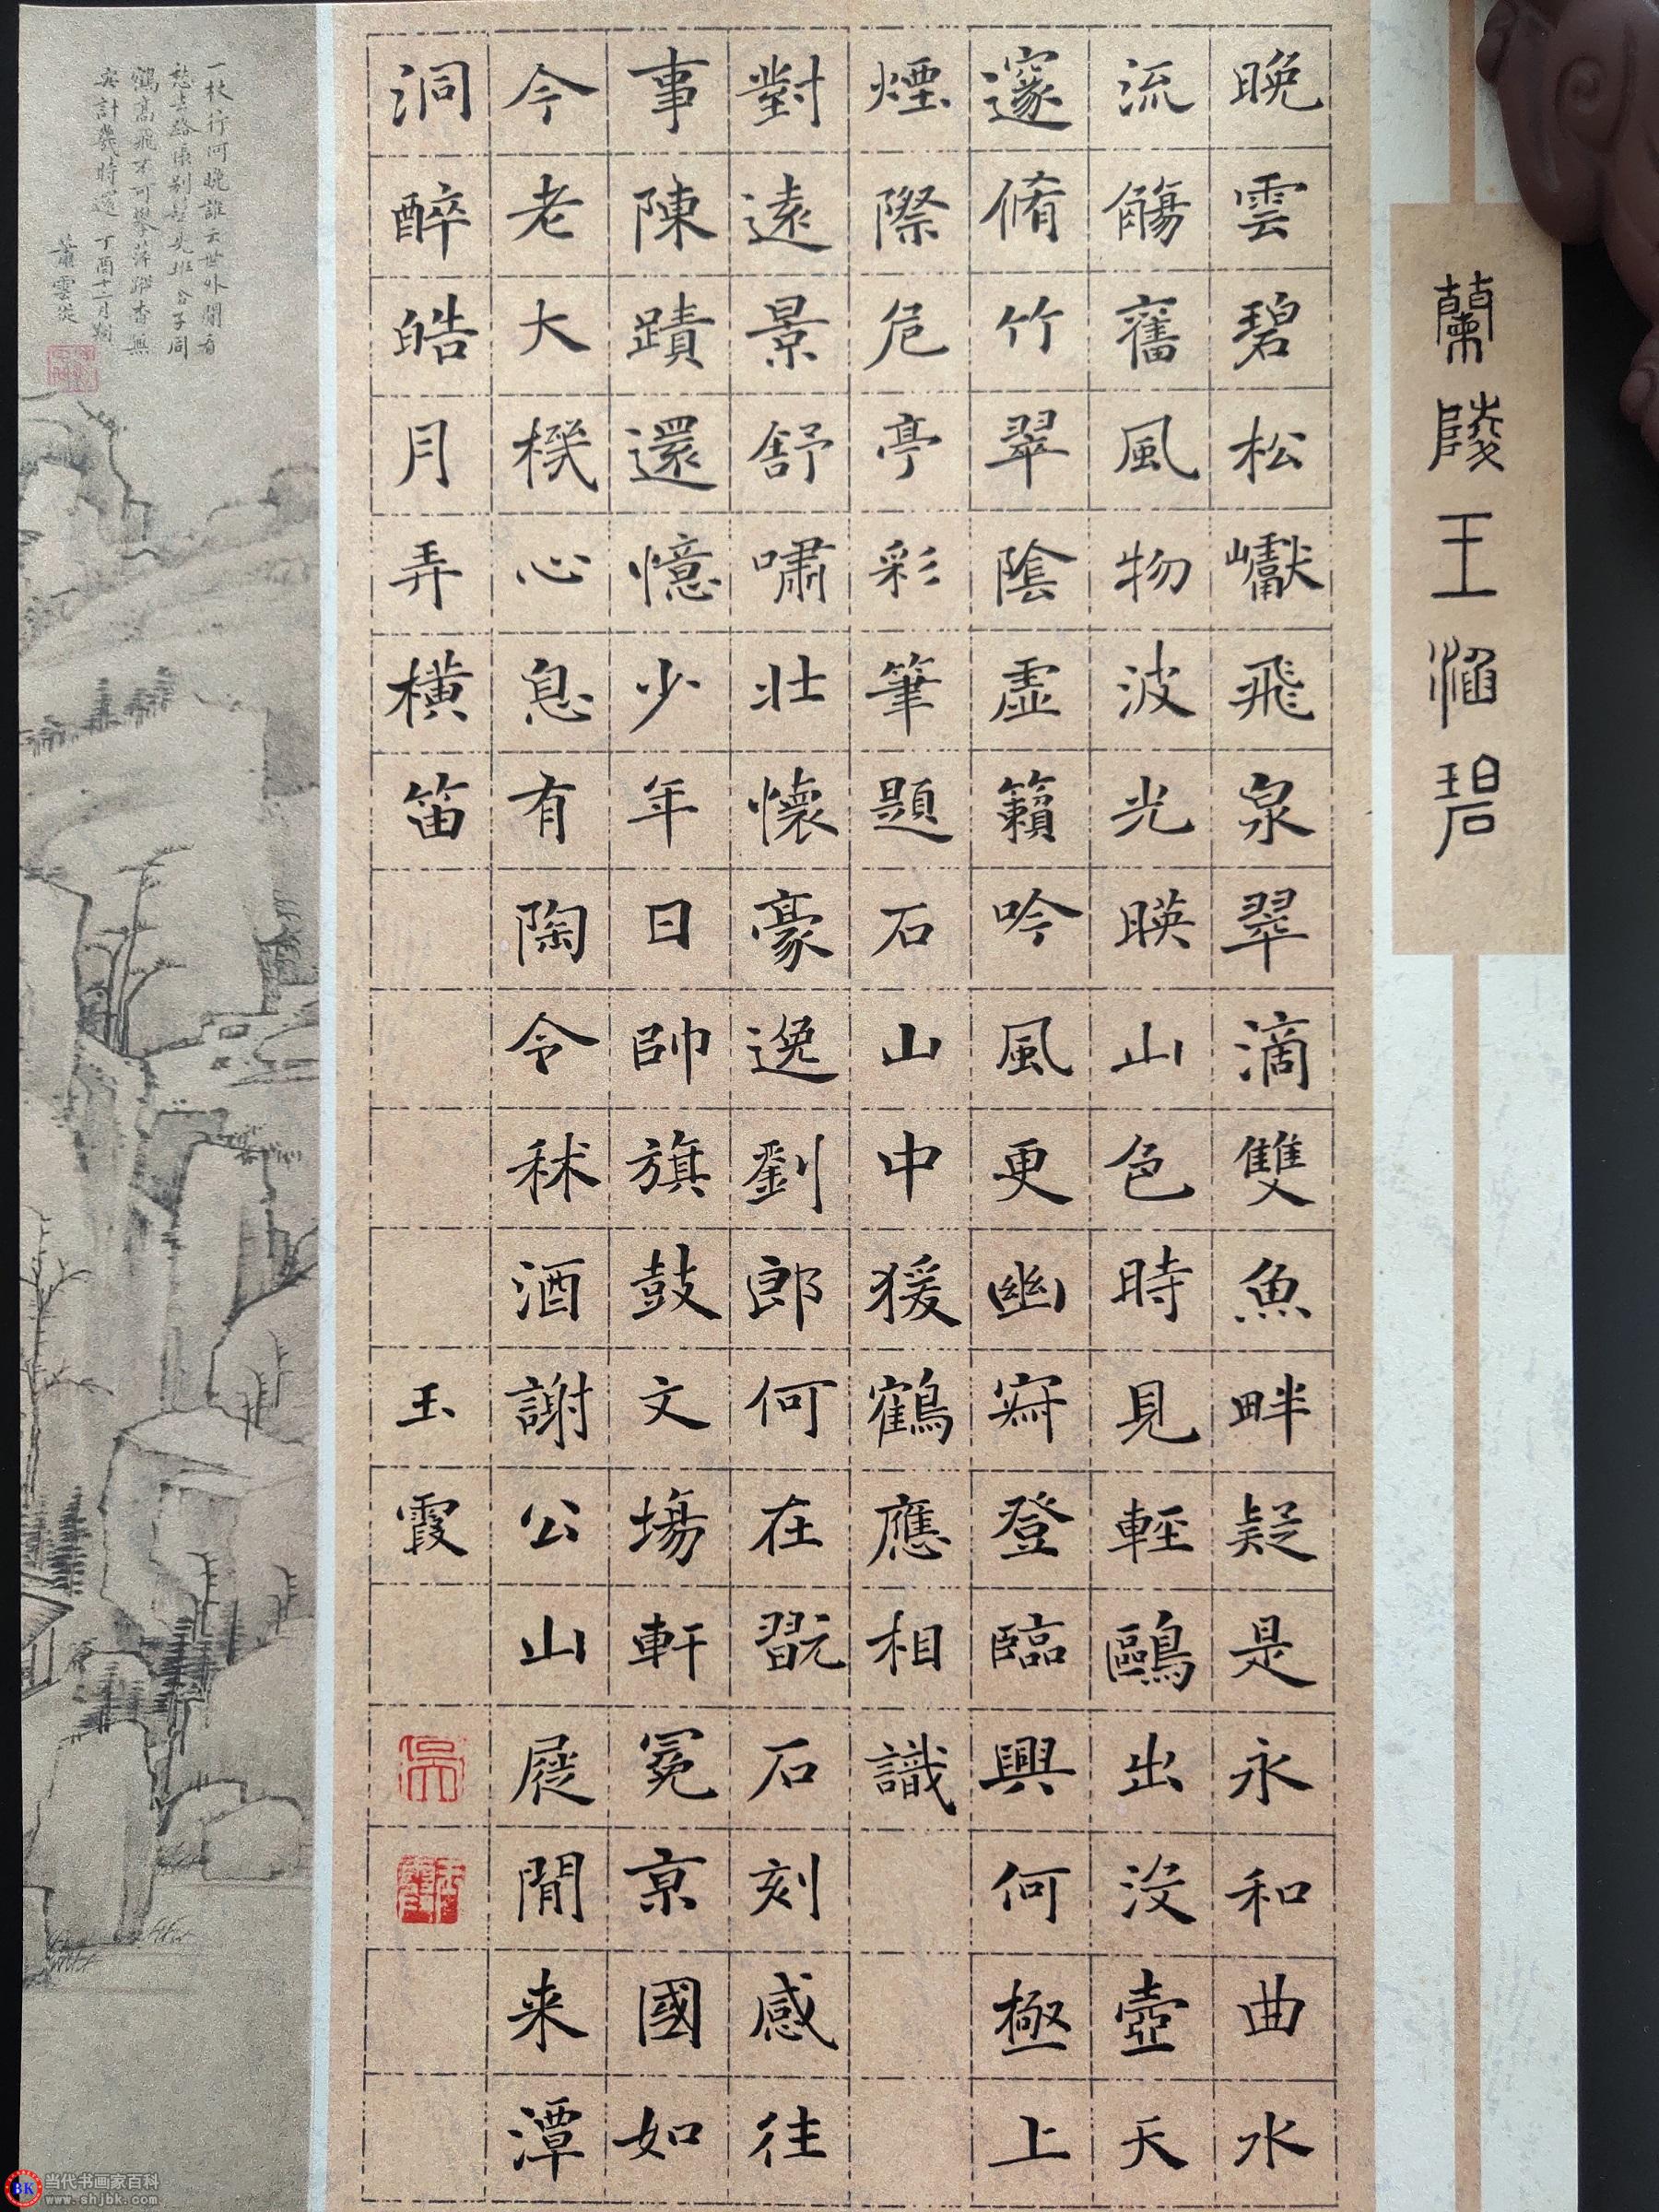 蘭陵王涵碧
晚雲碧松巘飛泉翠滴雙魚畔疑是永和曲水
流觴舊風物波光暎山色時見輕鷗出沒壺天
邃脩竹翠陰虛籟吟風更幽㝛登臨興何極上
煙際危亭彩筆題石山中猨鶴應相識
對遠景舒嘯壯懷豪逸劉郎何在翫石刻感往
事陳蹟還憶少年日帥旗鼓文場軒冕京國如
今老大機心息有陶令秫酒謝公山屐閒来潭
洞醉皓月弄橫笛
玉霞
一杖行何晚誰云世外閒看
鶴高飛不可攀萍蹤杳無
丁酉十一月
蕭雲從
BK
当代书画家百科
www.shjbk.com